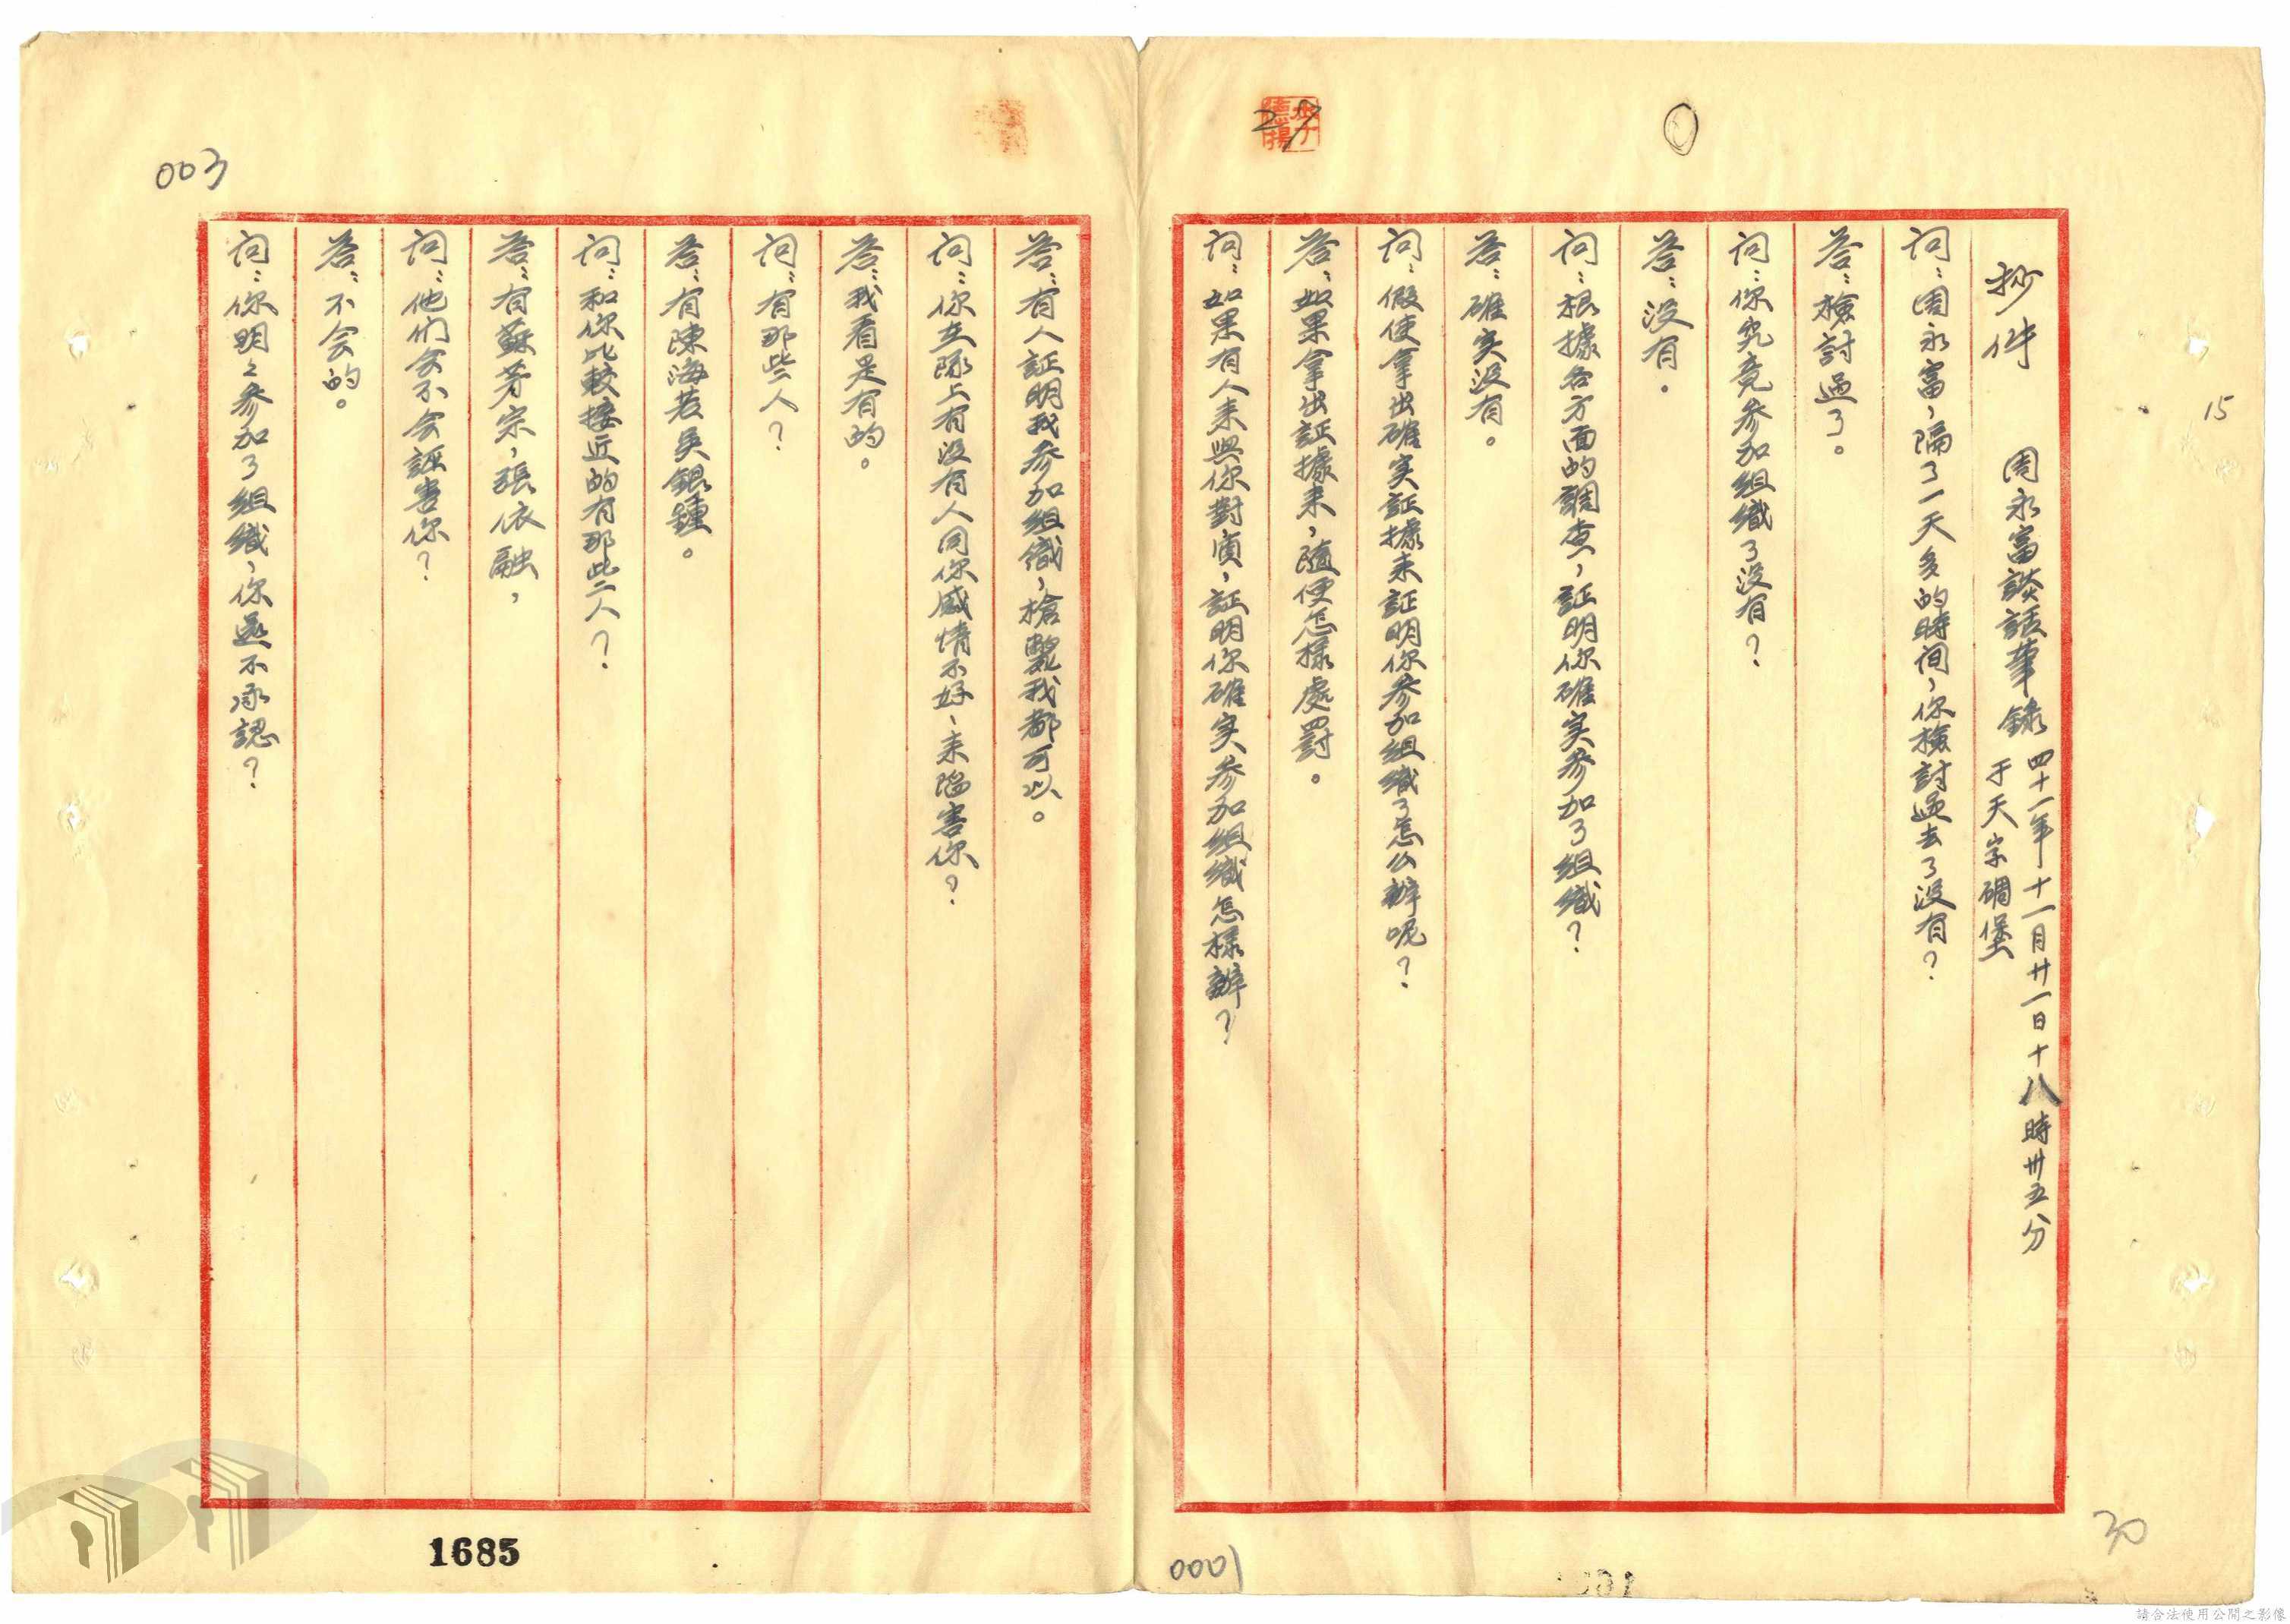 抄件
周永富談話筆錄
四十一年十一月廿一日十八時卅五分
于天字碉堡
问：周永富，隔了一天多的時间，你檢討過去了没有？
答：檢討過了。
问：你究竟參加組織了没有？
答：没有。
问：根據各方面的調查，証明你確实參加了組織？
答：確实没有。
问：假使拿出確实証據来証明你參加組織了怎么辦呢？
答：如果拿出証據来，隨便怎樣處罰。
问：如果有人来與你對质，証明你確实參加組織怎樣辦？
答：有人証明我參加組織，槍斃我都可以。
问：你在隊上有没有人同你感情不好、来陷害你？
答：我看是有的。
问：有那些人？
答：有陳海若吳銀鍾。
问：和你比較接近的有那些人？
答：有蘇芳宗，張依融，
问：他们会不会誣害你？
答：不会的。
问：你明々參加了組織，你還不承認？
003
27
15
30
0001
1685
請合法使用公開之影像